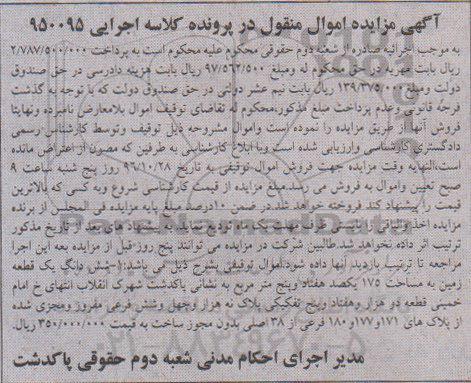 آگهی مزایده اموال منقول در پرونده کلاسه اجرایی ۹۵۰۰۹۵
به موجب اجرائیه صادره از شعبه دوم حقوقی محکوم علیه محکوم است به پرداخت ۲/۷۸۷/۵۰۰/۰۰۰
ریال بابت مهریه در حق محکوم له ومبلغ ۹۷/۵۶۲/۵۰۰ ریال بابت هزینه دادرسی در حق صندوق
دولت ومبلغ ۱۳۹/۳۷۵/۰۰۰ ریال بابت نیم عشر دولتی در حق صندوق دولت که با توجه به گذشت
فرجه قانونی وعدم پرداخت مبلغ مذکور،محکوم له تقاضای توقیف اموال بلامعارض نامبرده ونهایتا
فروش آنها از طریق مزایده را نموده است واموال مشروحه ذیل توقیف وتوسط کارشناس رسمی
دادگستری کارشناسی وارزیابی شده است وبا ابلاغ کارشناسی به طرفین که مصون از اعتراض مانده
است،النهایه وقت مزایده جهت فروش اموال توقیفی به تاریخ ۹۶/۱۰/۲۸ روز پنج شنبه ساعت ۹
صبح تعیین واموال به فروش می رسد.مبلغ مزایده از قیمت کارشناسی شروع وبه کسی که بالاترین
قیمت را پیشنهاد کند فروخته خواهد شد.در ضمن ۱۰درصد مبلغ پایه مزایده فی المجلس از برنده
مزایده اخذ والباقی را بایستی ظرف مهلت یک ماه تودیع نماید.به پیشنهاد های بعد از تاریخ مذکور
ترتیب اثر داده نخواهد شد.طالبین شرکت در مزایده می توانند پنج روز قبل از مزایده به این اجرا
مراجعه تا ترتیب بازدید آنها داده شود.اموال توقیفی بشرح ذیل می باشد:۱-شش دانگ یک قطعه
زمین به مساحت ۱۷۵ یکصد هفتاد وپنج متر مربع به نشانی پاکدشت شهرک انقلاب انتهای خ امام
خمینی قطعه دو هزار وهفتاد وپنج تفکیکی پلاک نه هزار وچهل وشش فرعی مفروز ومجزی شده
از پلاک های ۱۷۱و۱۷۷و۱۸۰ فرعی از ۳۸ اصلی بدون مجوز ساخت به قیمت ۳۵۰/۰۰۰/۰۰۰ ریال.
مدیر اجرای احکام مدنی شعبه دوم حقوقی پاکدشت
ParsNamadData
۰۲۱-۸۸۳۴۹۶۷۰-۵